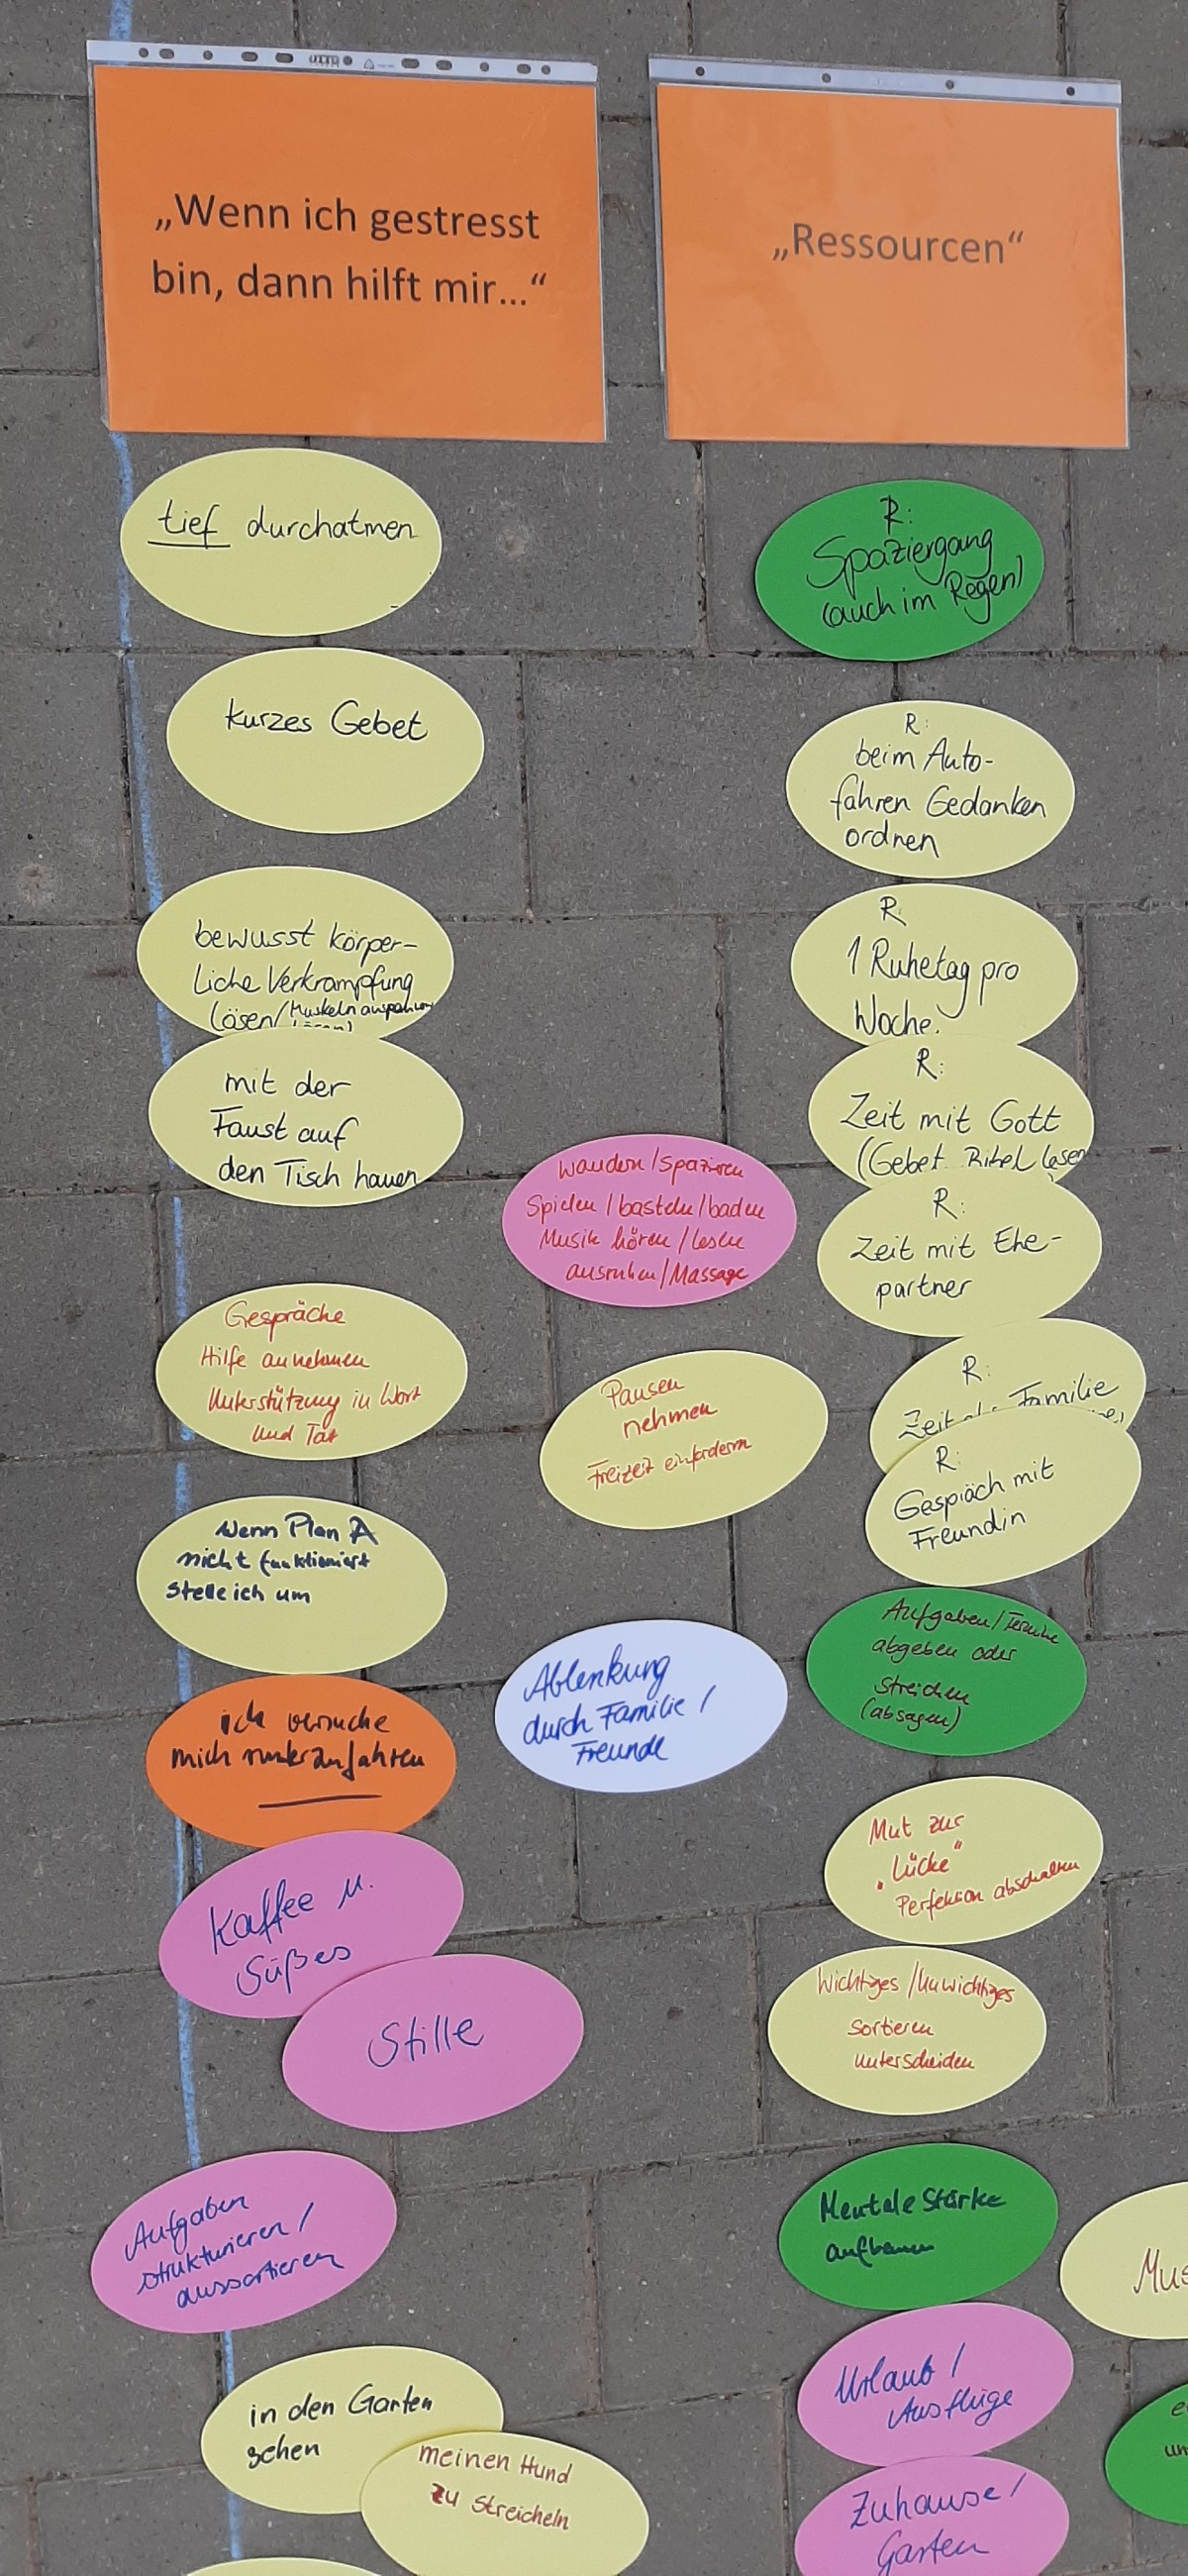 „Wenn ich gestresst
bin, dann hilft mir...“
tief durchatmen
kurzes Gebet
bewusst körper-
liche Verkrampfung
lösen/Muskeln
mit der
Faust auf
den Tisch hauen
Gespräche
Hilfe annehmen
Unterstützung in Wort
und Tat
Wenn Plan A
nicht funktioniert
stelle ich um
ich versuche
mich runterzufahren
Kaffee u.
Süßes
Stille
Aufgaben
strukturieren/
aussortieren
in den Garten
gehen
meinen Hund
zu streicheln
wandern/spazieren
Spielen/basteln/baden
Musik hören/lesen
ausruhen/Massage
Pausen
nehmen
Freizeit einfordern
Ablenkung
durch Familie/
Freunde
„Ressourcen“
R:
Spaziergang
(auch im Regen)
R:
beim Auto-
fahren Gedanken
ordnen
R:
1 Ruhetag pro
Woche.
R:
Zeit mit Gott
(Gebet Bibel lesen
R:
Zeit mit Ehe-
partner
R:
Zeit als Familie
R:
Gespräch mit
Freundin
Aufgaben/Termine
abgeben oder
streichen
(absagen)
Mut zur
„Lücke“
Perfektion abschalten
Wichtiges/Unwichtiges
sortieren
unterscheiden
Mentale Stärke
aufbauen
Urlaub/
Ausflüge
Zuhause/
Garten
Mus